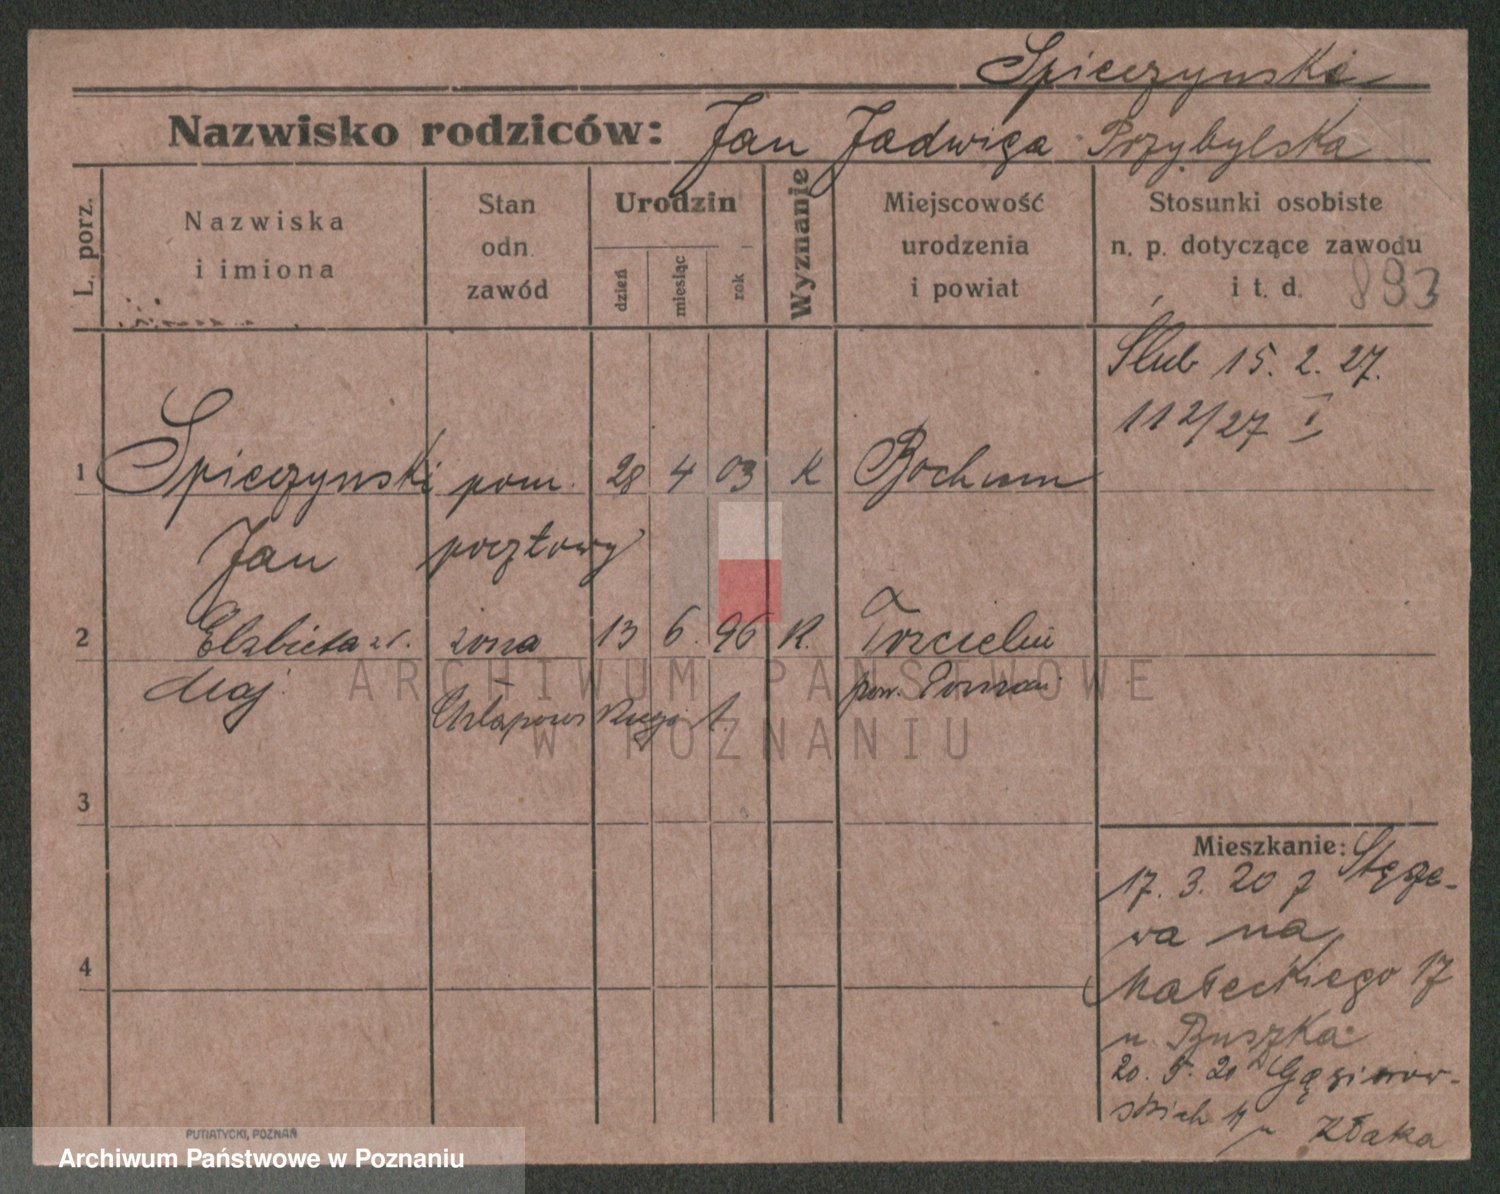 Spieczynski
Nazwisko rodziców: Jan Jadwiga Przybylska
L. porz.
Nazwiska
i imiona
Stan
odn.
zawód
Urodzin
dzień
miesiąc
rok
Wyznanie
Miejscowość
urodzenia
i powiat
Stosunki osobiste
n. p. dotyczące zawodu
i t. d.
893
Ślub 15. 2. 27.
112/27 I
1 Spieczynski pom. 28 4 03 K Bochum
Jan pocztowy
2 Elzbieta żona 13 6. 96 K.
pow.
3
Mieszkanie: Stęsze-
17. 3. 20 z
wa na
Małeckiego 17
4
u Buszka
20. 5. 20 Gąsiorow-
skich u
ARCHIWUM PAŃSTWOWE
W POZNANIU
PUTIATYCKI, POZNAŃ
Archiwum Państwowe w Poznaniu